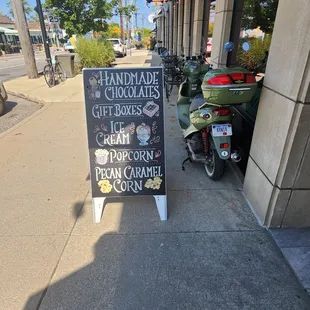 Handmade
Chocolates
Gift Boxes
Ice
Cream
Popcorn
Pecan Caramel
Corn